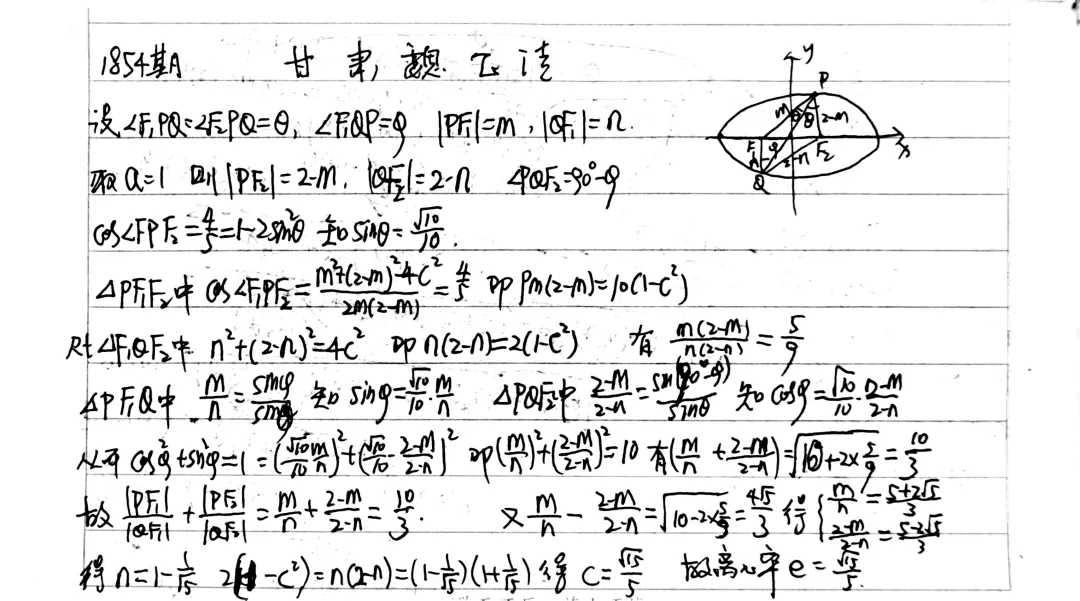 1854其A 甘肃, 魏
设∠F₁PQ=∠F₂PQ=θ, ∠F₁QP=φ |PF₁|=m, |QF₁|=n.
取a=1 则|PF₂|=2-m, |QF₂|=2-n ∠PQF₂=90°-φ
cos∠FPF₂=4/5=1-2sin²θ 知sinθ=√10/10.
△PF₁F₂中 cos∠F₁PF₂=(m²+(2-m)²-4c²)/(2m(2-m))=4/5 即9m(2-m)=10(1-c²)
Rt△F₁QF₂中 n²+(2-n)²=4c² 即n(2-n)=2(1-c²) 有 m(2-m)/(n(2-n))=5/9
△PF₁Q中 m/n=sinφ/sinθ 知sinφ=√10/10·m/n △PQF₂中 (2-m)/(2-n)=sin(90°-φ)/sinθ 知cosφ=√10/10·(2-m)/(2-n)
从而cos²φ+sin²φ=1=(√10/10·m/n)²+(√10/10·(2-m)/(2-n))² 即(m/n)²+((2-m)/(2-n))²=10 有(m/n+(2-m)/(2-n))=√(10+2×5/9)=10/3
故|PF₁|/|QF₁|+|PF₂|/|QF₂|=m/n+(2-m)/(2-n)=10/3. 又m/n-(2-m)/(2-n)=√(10-2×5/9)=4√5/3 得{m/n=(5+2√5)/3 (2-m)/(2-n)=(5-2√5)/3
得n=1-1/√5 2(1-c²)=n(2-n)=(1-1/√5)(1+1/√5)得c=√15/5 故离心率e=√15/5.
y
P
m
θ
θ
2-m
F₁
F₂
x
n
φ
2-n
Q